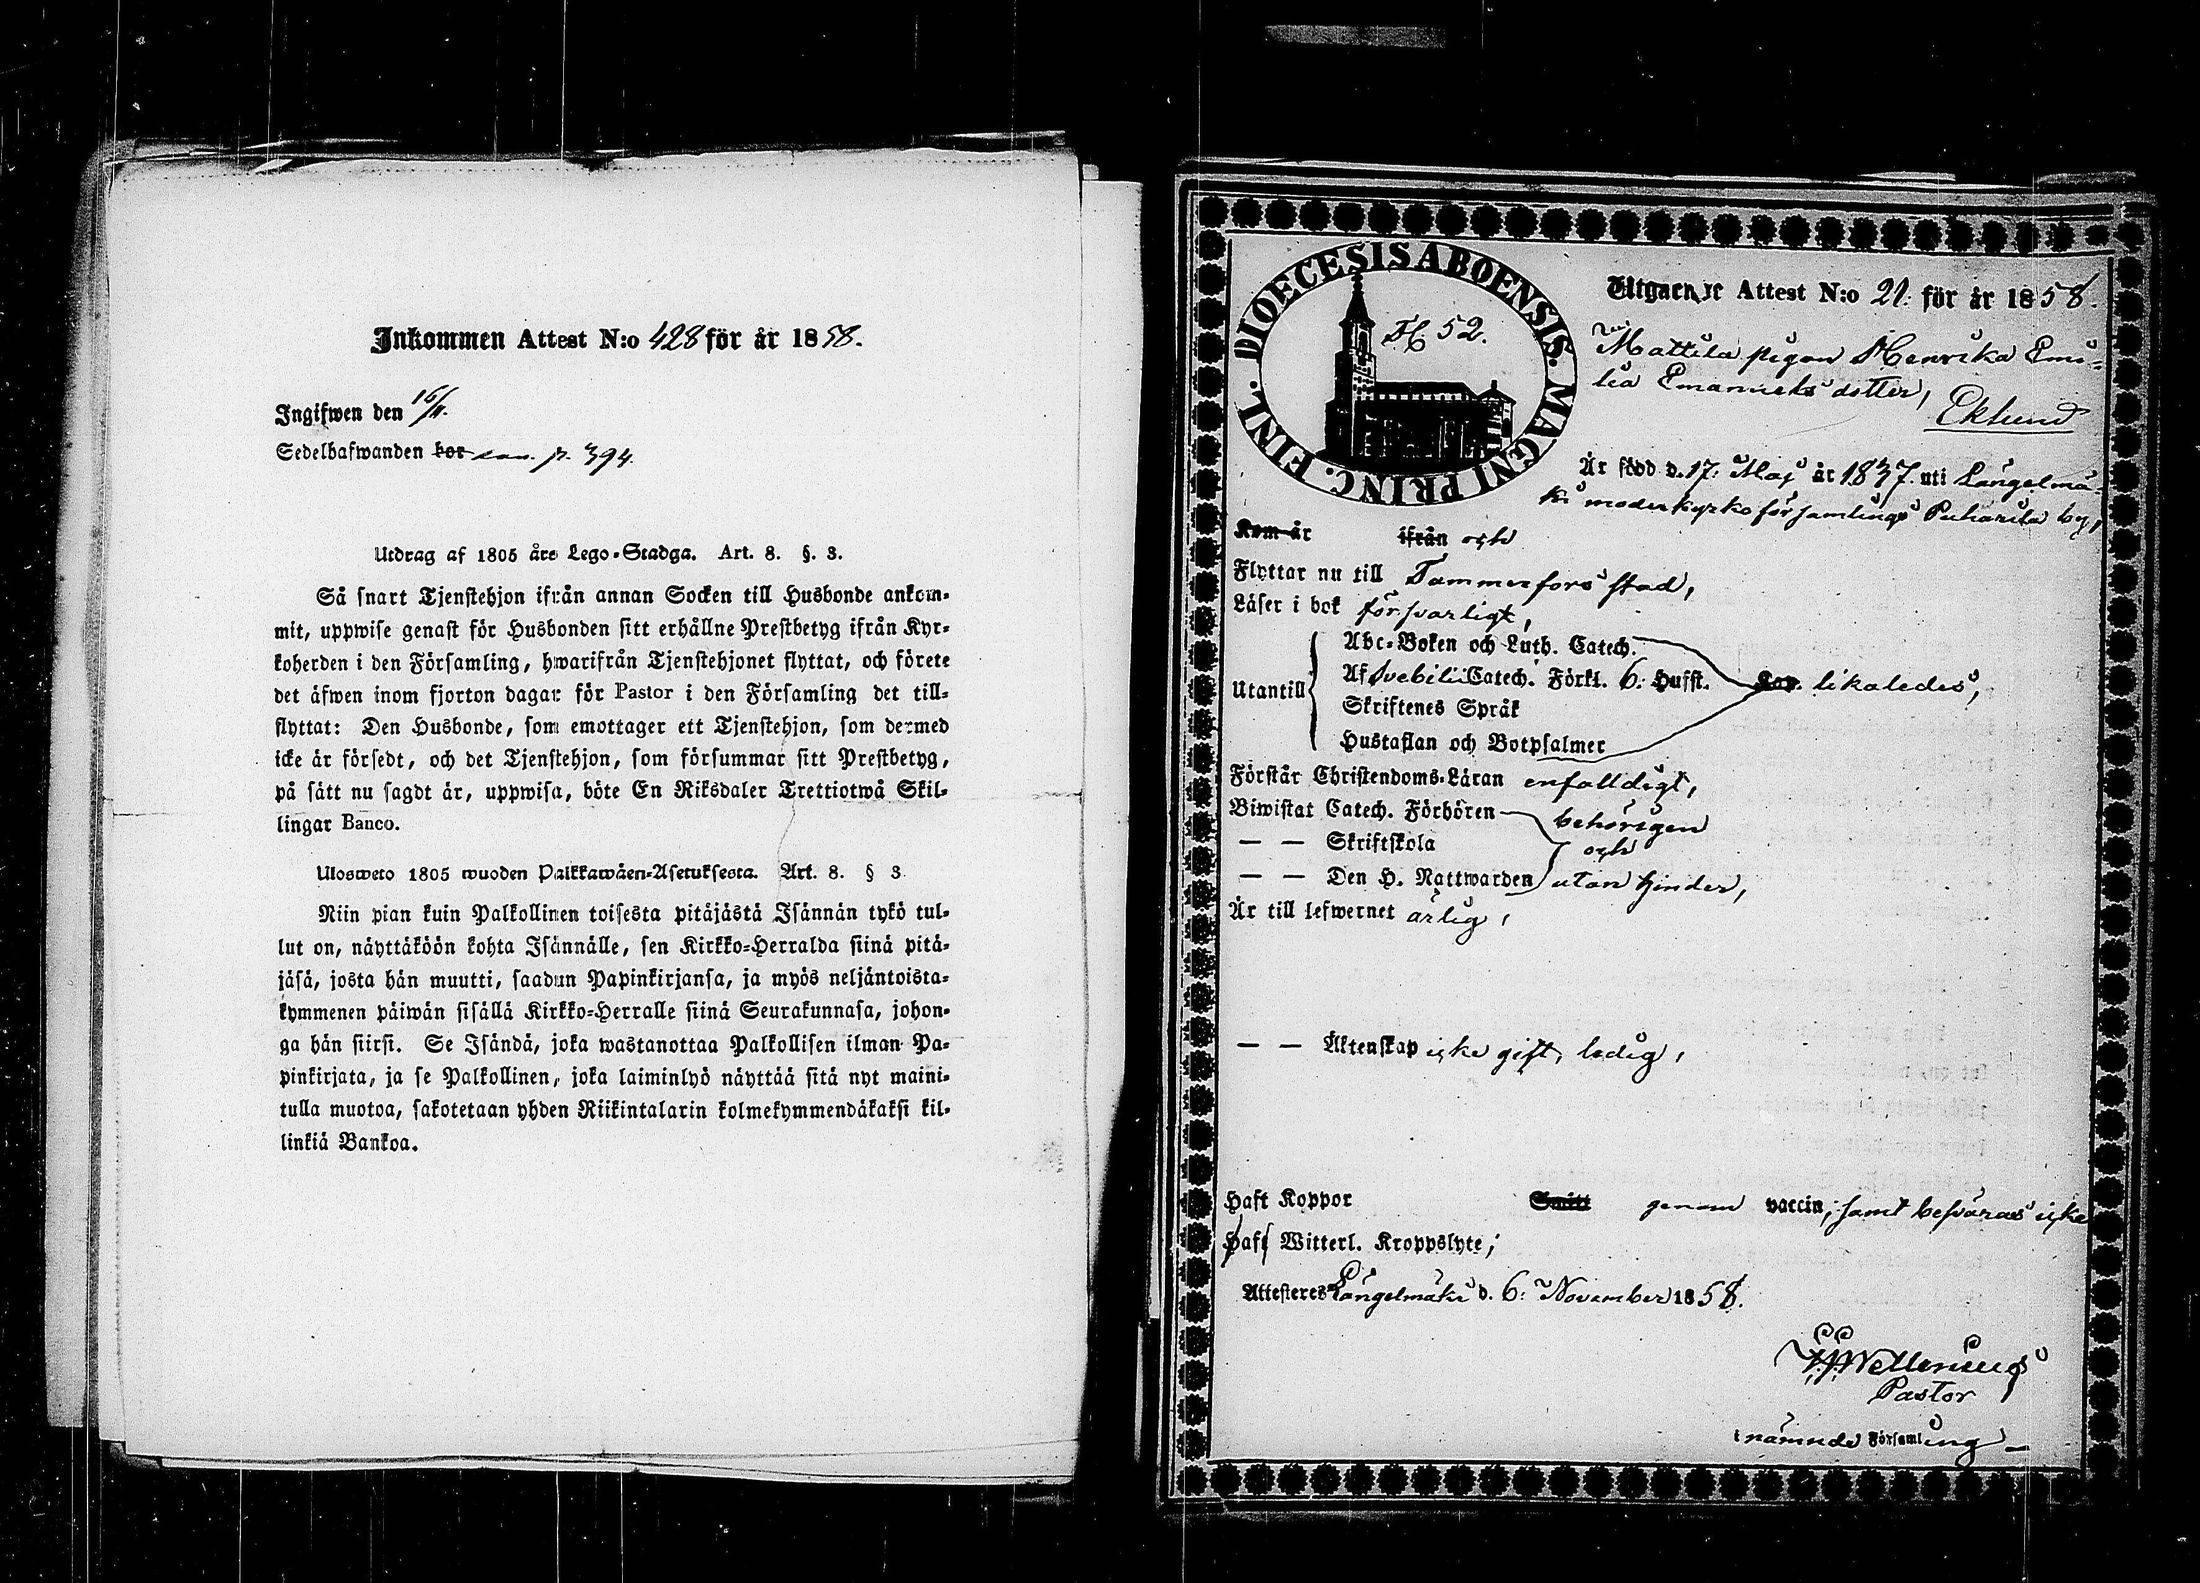 Inkommen Attest N:o 428 för år 1858.
Ingifwen den 16/11.
Sedelhafwanden bor p. 394.
Utdrag af 1805 års Lego-Stadga. Art. 8. §. 3.
Så snart Tjenstehjon ifrån annan Socken till Husbonde ankom-
mit, uppwise genast för Husbonden sitt erhållne Prestbetyg ifrån Kyr-
koherden i den Församling, hwarifrån Tjenstehjonet flyttat, och förete
det äfwen inom fjorton dagar för Pastor i den Församling det till-
flyttat: Den Husbonde, som emottager ett Tjenstehjon, som dermed
icke är försedt, och det Tjenstehjon, som försummar sitt Prestbetyg,
på sätt nu sagdt är, uppwisa, böte En Riksdaler Trettiotwå Skil-
lingar Banco.
Ulosweto 1805 wuoden Palkkawäen-Asetuksesta. Art. 8. § 3
Niin pian kuin Palkollinen toisesta pitäjästä Isännän tykö tul-
lut on, näyttäköön kohta Isännälle, sen Kirkko-Herralda siinä pitä-
jäsä, josta hän muutti, saadun Papinkirjansa, ja myös neljäntoista-
kymmenen päiwän sisällä Kirkko-Herralle siinä Seurakunnasa, johon-
ga hän siirsi. Se Isändä, joka wastanottaa Palkollisen ilman Pa-
pinkirjata, ja se Palkollinen, joka laiminlyö näyttää sitä nyt maini-
tulla muotoa, sakotetaan yhden Riikintalarin kolmekymmendäkaksi kil-
linkiä Bankoa.
DIOECESIS ABOENSIS. MAGNI PRINC. FINL.
52.
Utgående Attest N:o 21: för år 1858.
Mattila pigan Henrika Emi-
lia Emanuelsdotter,
Eklund
År född d. 17: Maj år 1837. uti Längelmä-
ki moderkyrkoförsamlings Puharila by,
Kom år ifrån och
Flyttar nu till Tammerfors stad,
Läser i bok försvarligt,
Utantill
Abc-Boken och Luth. Catech.
Af Svebilii Catech. Förkl. 6. Hufst. likaledes,
Skriftenes Språk
Hustaflan och Botpsalmer
Förstår Christendoms-Läran enfalldigt,
Biwistat Catech. Förhören behörigen
— — Skriftskola och
— — Den H. Nattwarden utan hinder,
Är till lefwernet ärlig,
— — Äktenskap icke gift, ledig,
Haft Koppor Smitt genom vaccin, samt besväras icke
Haft Witterl. Kroppslyte;
Attesteres Längelmäki d. 6: November 1858.
Pastor
i nämnde Församling —